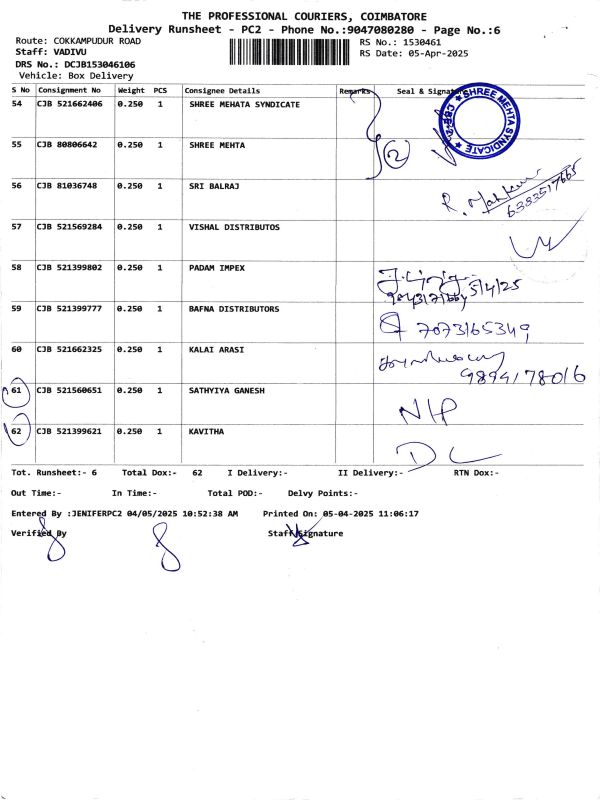 THE PROFESSIONAL COURIERS, COIMBATORE
Delivery Runsheet - PC2 - Phone No.:9047080280 - Page No.:6
Route: COKKAMPUDUR ROAD
RS No.: 1530461
Staff: VADIVU
RS Date: 05-Apr-2025
DRS No.: DCJB153046106
Vehicle: Box Delivery
S No Consignment No Weight PCS Consignee Details Remarks Seal & Signature
54 CJB 521662406 0.250 1 SHREE MEHATA SYNDICATE
SHREE MEHTA SYNDICATE
2
55 CJB 80806642 0.250 1 SHREE MEHTA
56 CJB 81036748 0.250 1 SRI BALRAJ
R.
6383517665
57 CJB 521569284 0.250 1 VISHAL DISTRIBUTOS
58 CJB 521399802 0.250 1 PADAM IMPEX
5/4/25
59 CJB 521399777 0.250 1 BAFNA DISTRIBUTORS
7073165349
60 CJB 521662325 0.250 1 KALAI ARASI
9894178016
61 CJB 521560651 0.250 1 SATHYIYA GANESH
N/P
62 CJB 521399621 0.250 1 KAVITHA
DL
Tot. Runsheet:- 6 Total Dox:- 62 I Delivery:- II Delivery:- RTN Dox:-
Out Time:- In Time:- Total POD:- Delvy Points:-
Entered By :JENIFERPC2 04/05/2025 10:52:38 AM Printed On: 05-04-2025 11:06:17
Verified By Staff Signature